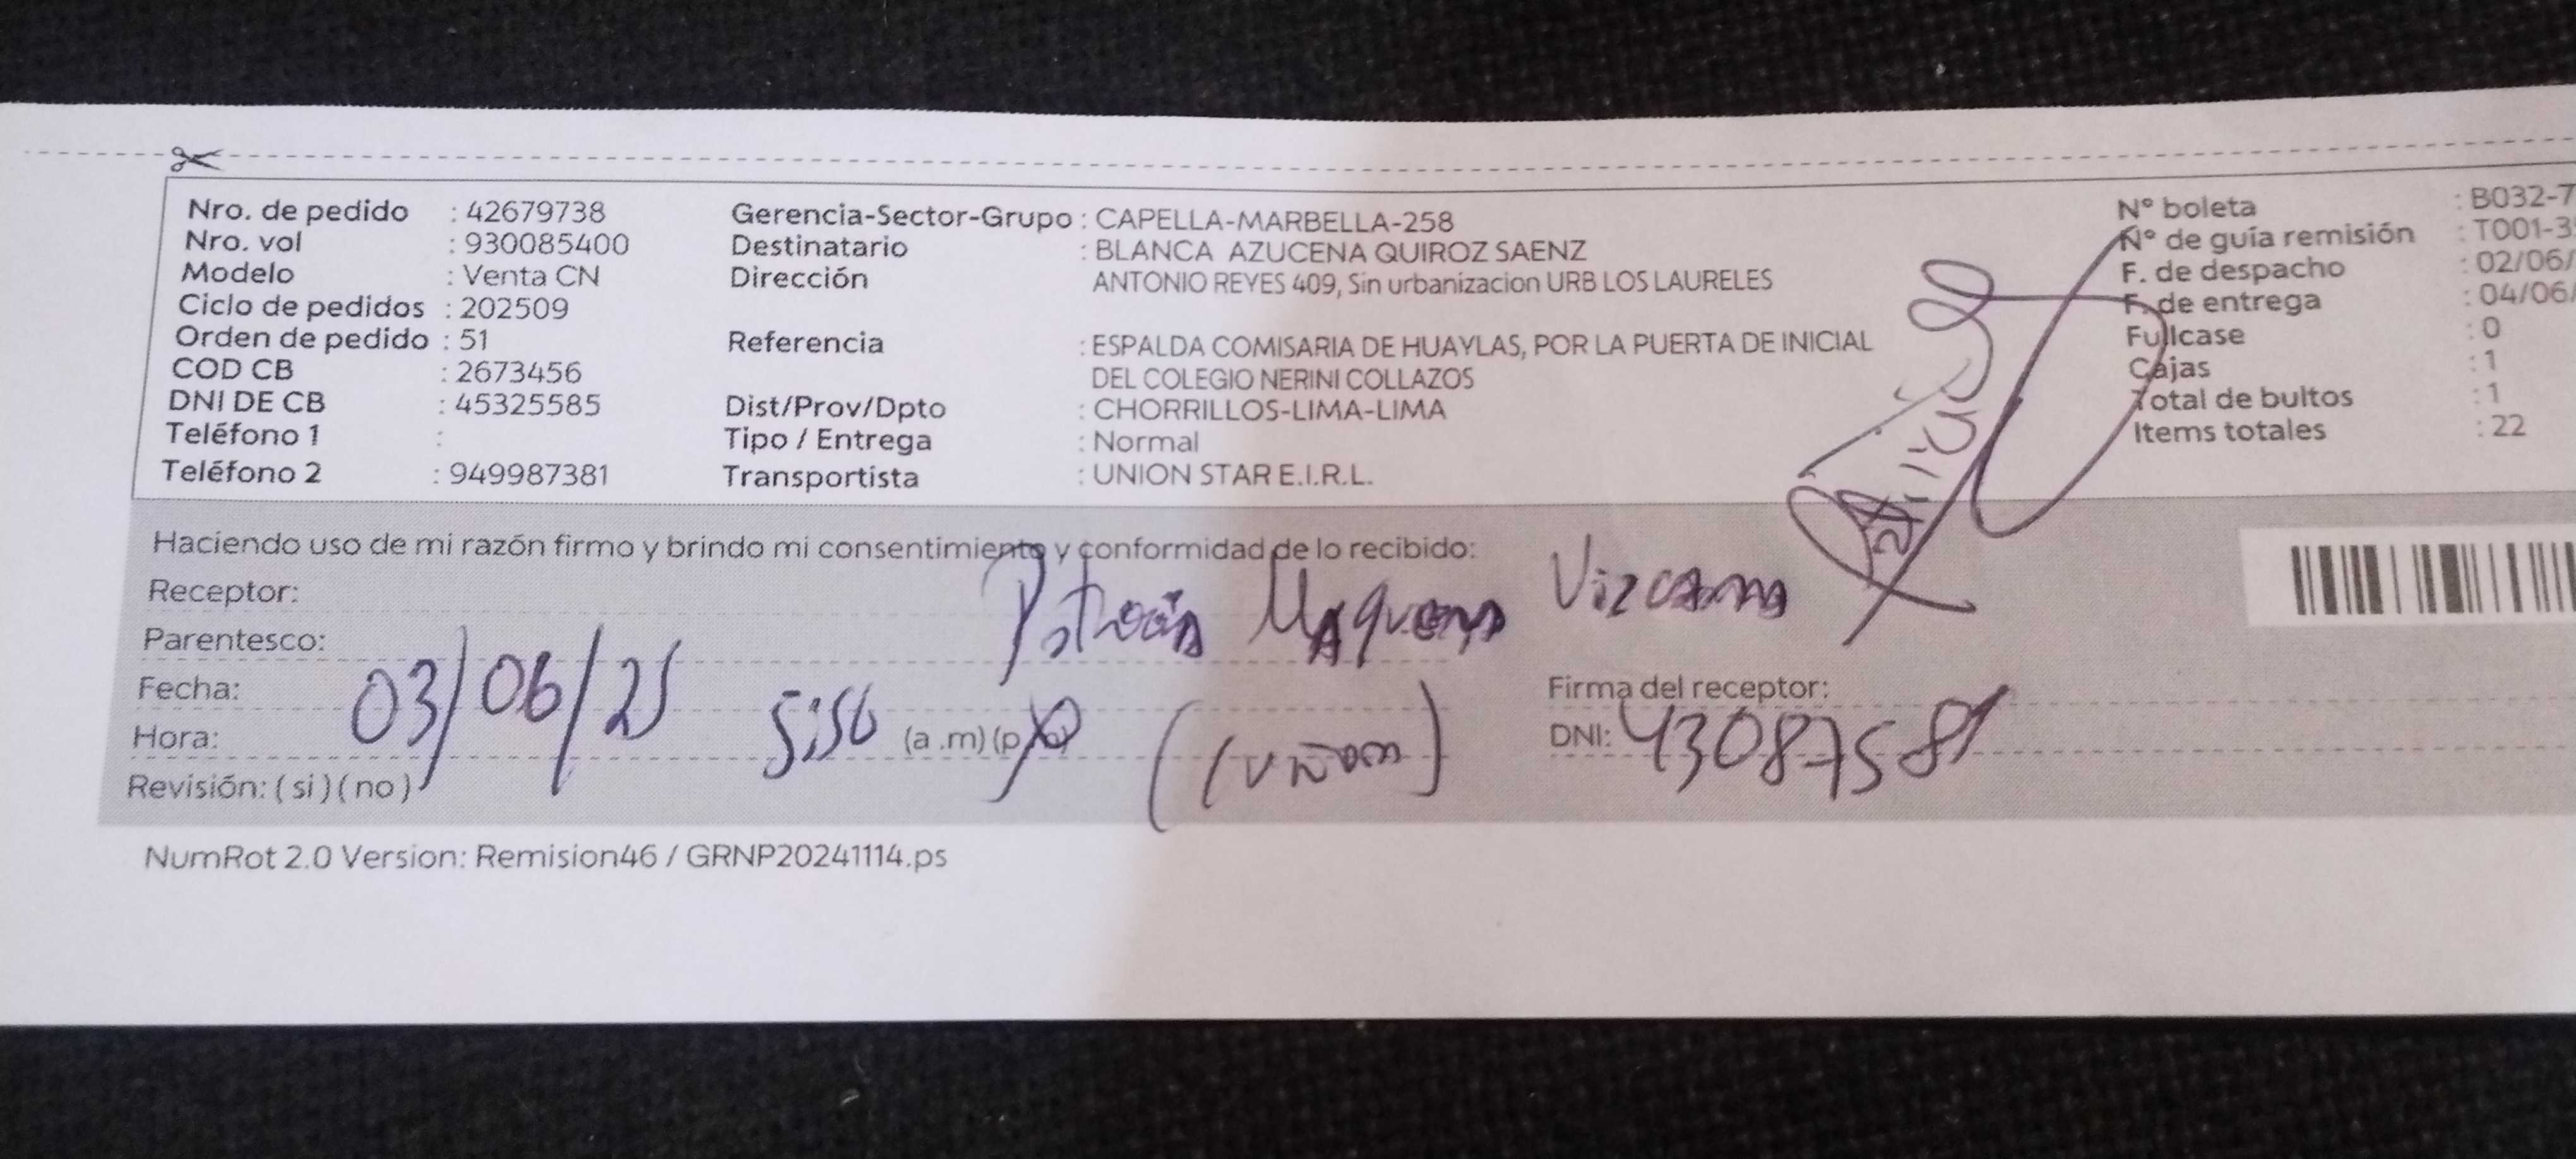 Nro. de pedido : 42679738
Nro. vol : 930085400
Modelo : Venta CN
Ciclo de pedidos : 202509
Orden de pedido : 51
COD CB : 2673456
DNI DE CB : 45325585
Teléfono 1 :
Teléfono 2 : 949987381
Gerencia-Sector-Grupo : CAPELLA-MARBELLA-258
Destinatario : BLANCA AZUCENA QUIROZ SAENZ
Dirección ANTONIO REYES 409, Sin urbanizacion URB LOS LAURELES
Referencia : ESPALDA COMISARIA DE HUAYLAS, POR LA PUERTA DE INICIAL
DEL COLEGIO NERINI COLLAZOS
Dist/Prov/Dpto : CHORRILLOS-LIMA-LIMA
Tipo / Entrega : Normal
Transportista : UNION STAR E.I.R.L.
N° boleta : B032-7
N° de guía remisión : T001-3
F. de despacho : 02/06/
F. de entrega : 04/06/
Fullcase : 0
Cajas : 1
Total de bultos : 1
Items totales : 22
Haciendo uso de mi razón firmo y brindo mi consentimiento y conformidad de lo recibido:
Receptor:
Parentesco:
Fecha: 03/06/25
Hora: (a .m) (p
Revisión: ( si ) ( no )
Firma del receptor:
DNI:
NumRot 2.0 Version: Remision46 / GRNP20241114.ps